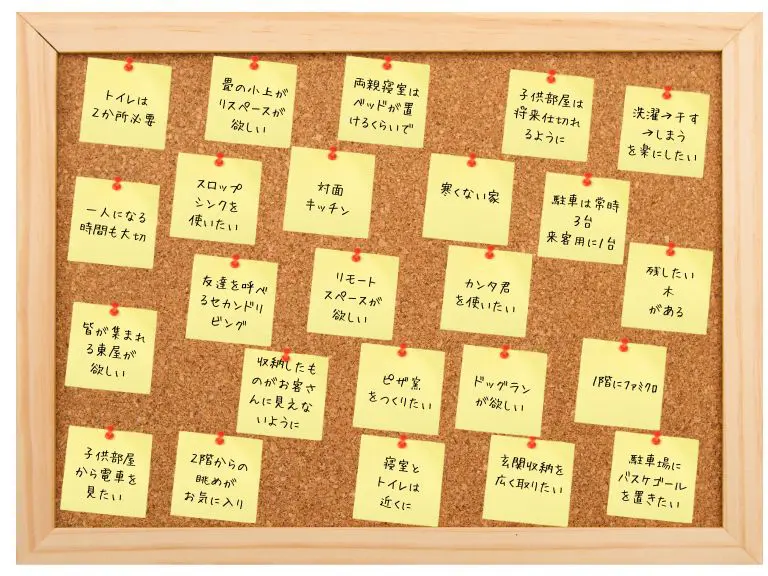 トイレは
2か所必要
畳の小上が
りスペースが
欲しい
両親寝室は
ベッドが置
けるくらいで
子供部屋は
将来仕切れ
るように
洗濯→干す
→しまう
を楽にしたい
一人になる
時間も大切
スロップ
シンクを
使いたい
対面
キッチン
寒くない家
駐車は常時
3台
来客用に1台
友達を呼べ
るセカンドリ
ビング
リモート
スペースが
欲しい
カンタ君
を使いたい
残したい
木
がある
皆が集まれ
る東屋が
欲しい
収納したも
のがお客さ
んに見えな
いように
ピザ窯
をつくりたい
ドッグラン
が欲しい
1階にファミクロ
子供部屋
から電車を
見たい
2階からの
眺めが
お気に入り
寝室と
トイレは
近くに
玄関収納を
広く取りたい
駐車場に
バスケゴール
を置きたい